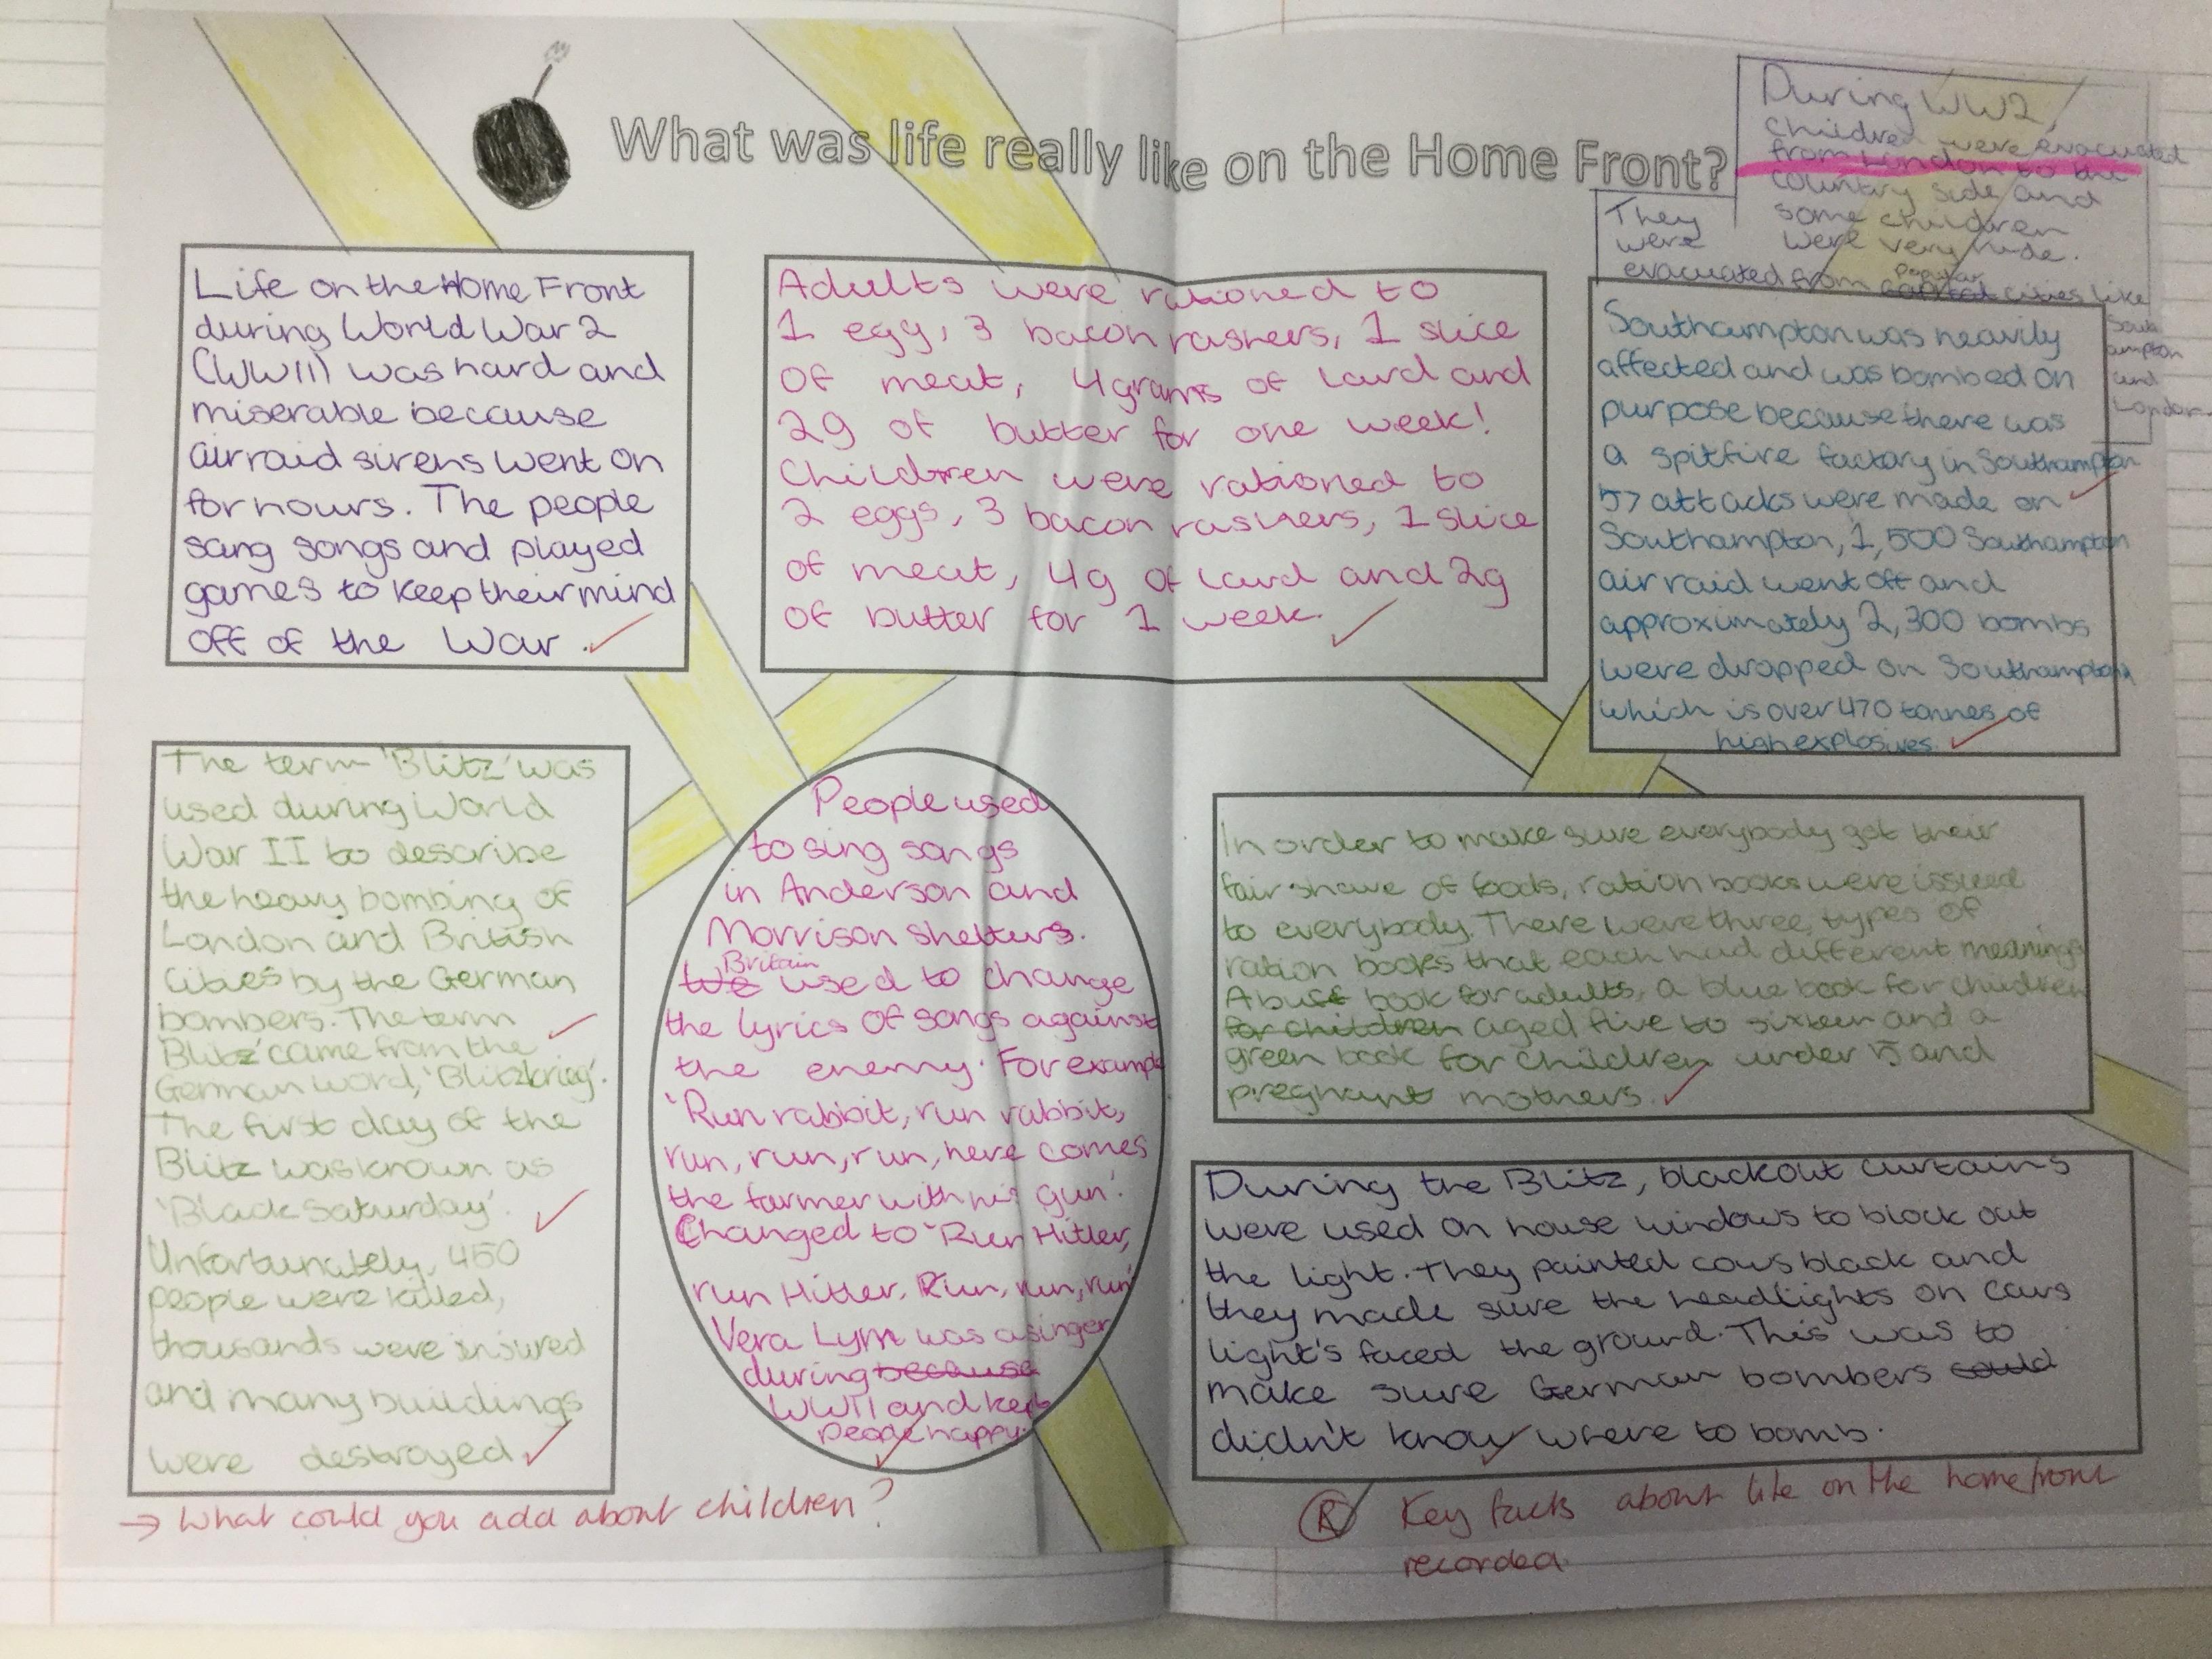 What was life really like on the Home Front?
During WW2,
children were evacuated
from London to the
country side and
some children
were very rude.
They
were
evacuated from capital cities like
popular
South
ampton
and
London.
Life on the Home Front
during World War 2
(WWII) was hard and
miserable because
air raid sirens went on
for hours. The people
sang songs and played
games to keep their mind
off of the War.
Adults were rationed to
1 egg, 3 bacon rashers, 1 slice
of meat, 4grams of lard and
2g of butter for one week!
Children were rationed to
2 eggs, 3 bacon rashers, 1 slice
of meat, 4g of lard and 2g
of butter for 1 week.
Southampton was heavily
affected and was bombed on
purpose because there was
a spitfire factory in Southampton
57 attacks were made on
Southampton, 1,500 Southampton
air raid went off and
approximately 2,300 bombs
were dropped on Southampton
which is over 470 tonnes of
high explosives.
The term 'Blitz' was
used during World
War II to describe
the heavy bombing of
London and British
cities by the German
bombers. The term
'Blitz' came from the
German word, 'Blitzkrieg'.
The first day of the
Blitz was known as
'Black Saturday'.
Unfortunately, 450
people were killed,
thousands were injured
and many buildings
were destroyed
People used
to sing songs
in Anderson and
Morrison shelters.
Britain
We used to change
the lyrics of songs against
the enemy. For example
'Run rabbit, run rabbit,
run, run, run, here comes
the farmer with his gun'.
Changed to 'Run Hitler,
run Hitler. Run, run, run'
Vera Lynn was a singer
during because
WWII and kept
people happy.
In order to make sure everybody got their
fair share of foods, ration books were issued
to everybody. There were three types of
ration books that each had different meanings
A buff book for adults, a blue book for children
for children aged five to sixteen and a
green book for children under 5 and
pregnant mothers.
During the Blitz, blackout curtains
were used on house windows to block out
the light. They painted cows black and
they made sure the headlights on cars
light's faced the ground. This was to
make sure German bombers could
didn't know where to bomb.
→ What could you add about children?
(R) Key facts about life on the homefront
recorded